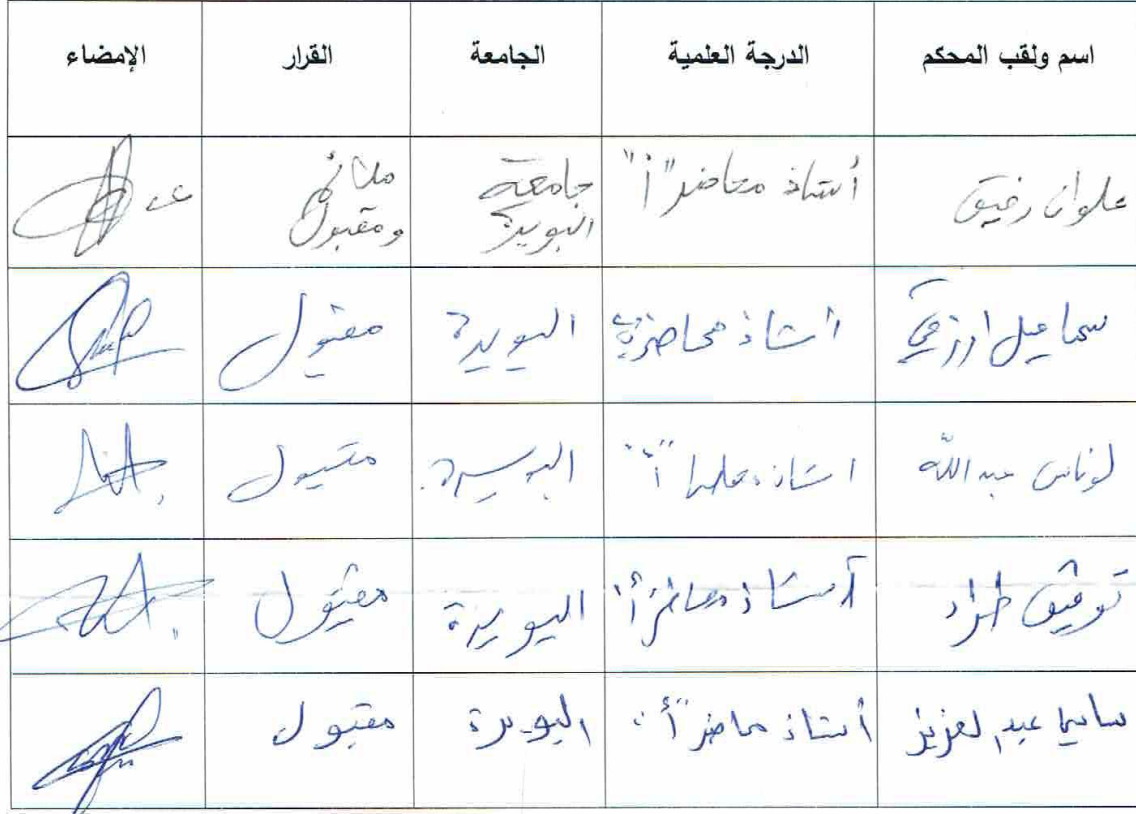 اسم ولقب المحكم الدرجة العلمية الجامعة القرار الإمضاء
علوان رفيق أستاذ محاضر "أ" جامعة البويرة ملائم ومقبول
سماعيل ارزقي أستاذ محاضر البويرة مقبول
لوناس عبد الله استاذ محاضر "أ" البويرة مقبول
توفيق طراد أستاذ محاضر أ البويرة مقبول
سايا عبد العزيز أستاذ محاضر "أ" البويرة مقبول